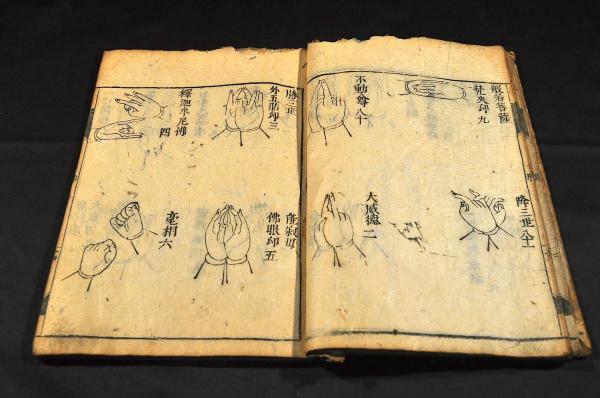 般若菩薩
梵夾印九
不動尊八十
降三世八十一
大威德二
勝三世
外五股印三
釋迦牟尼佛
四
能寂母
佛眼印五
毫相六